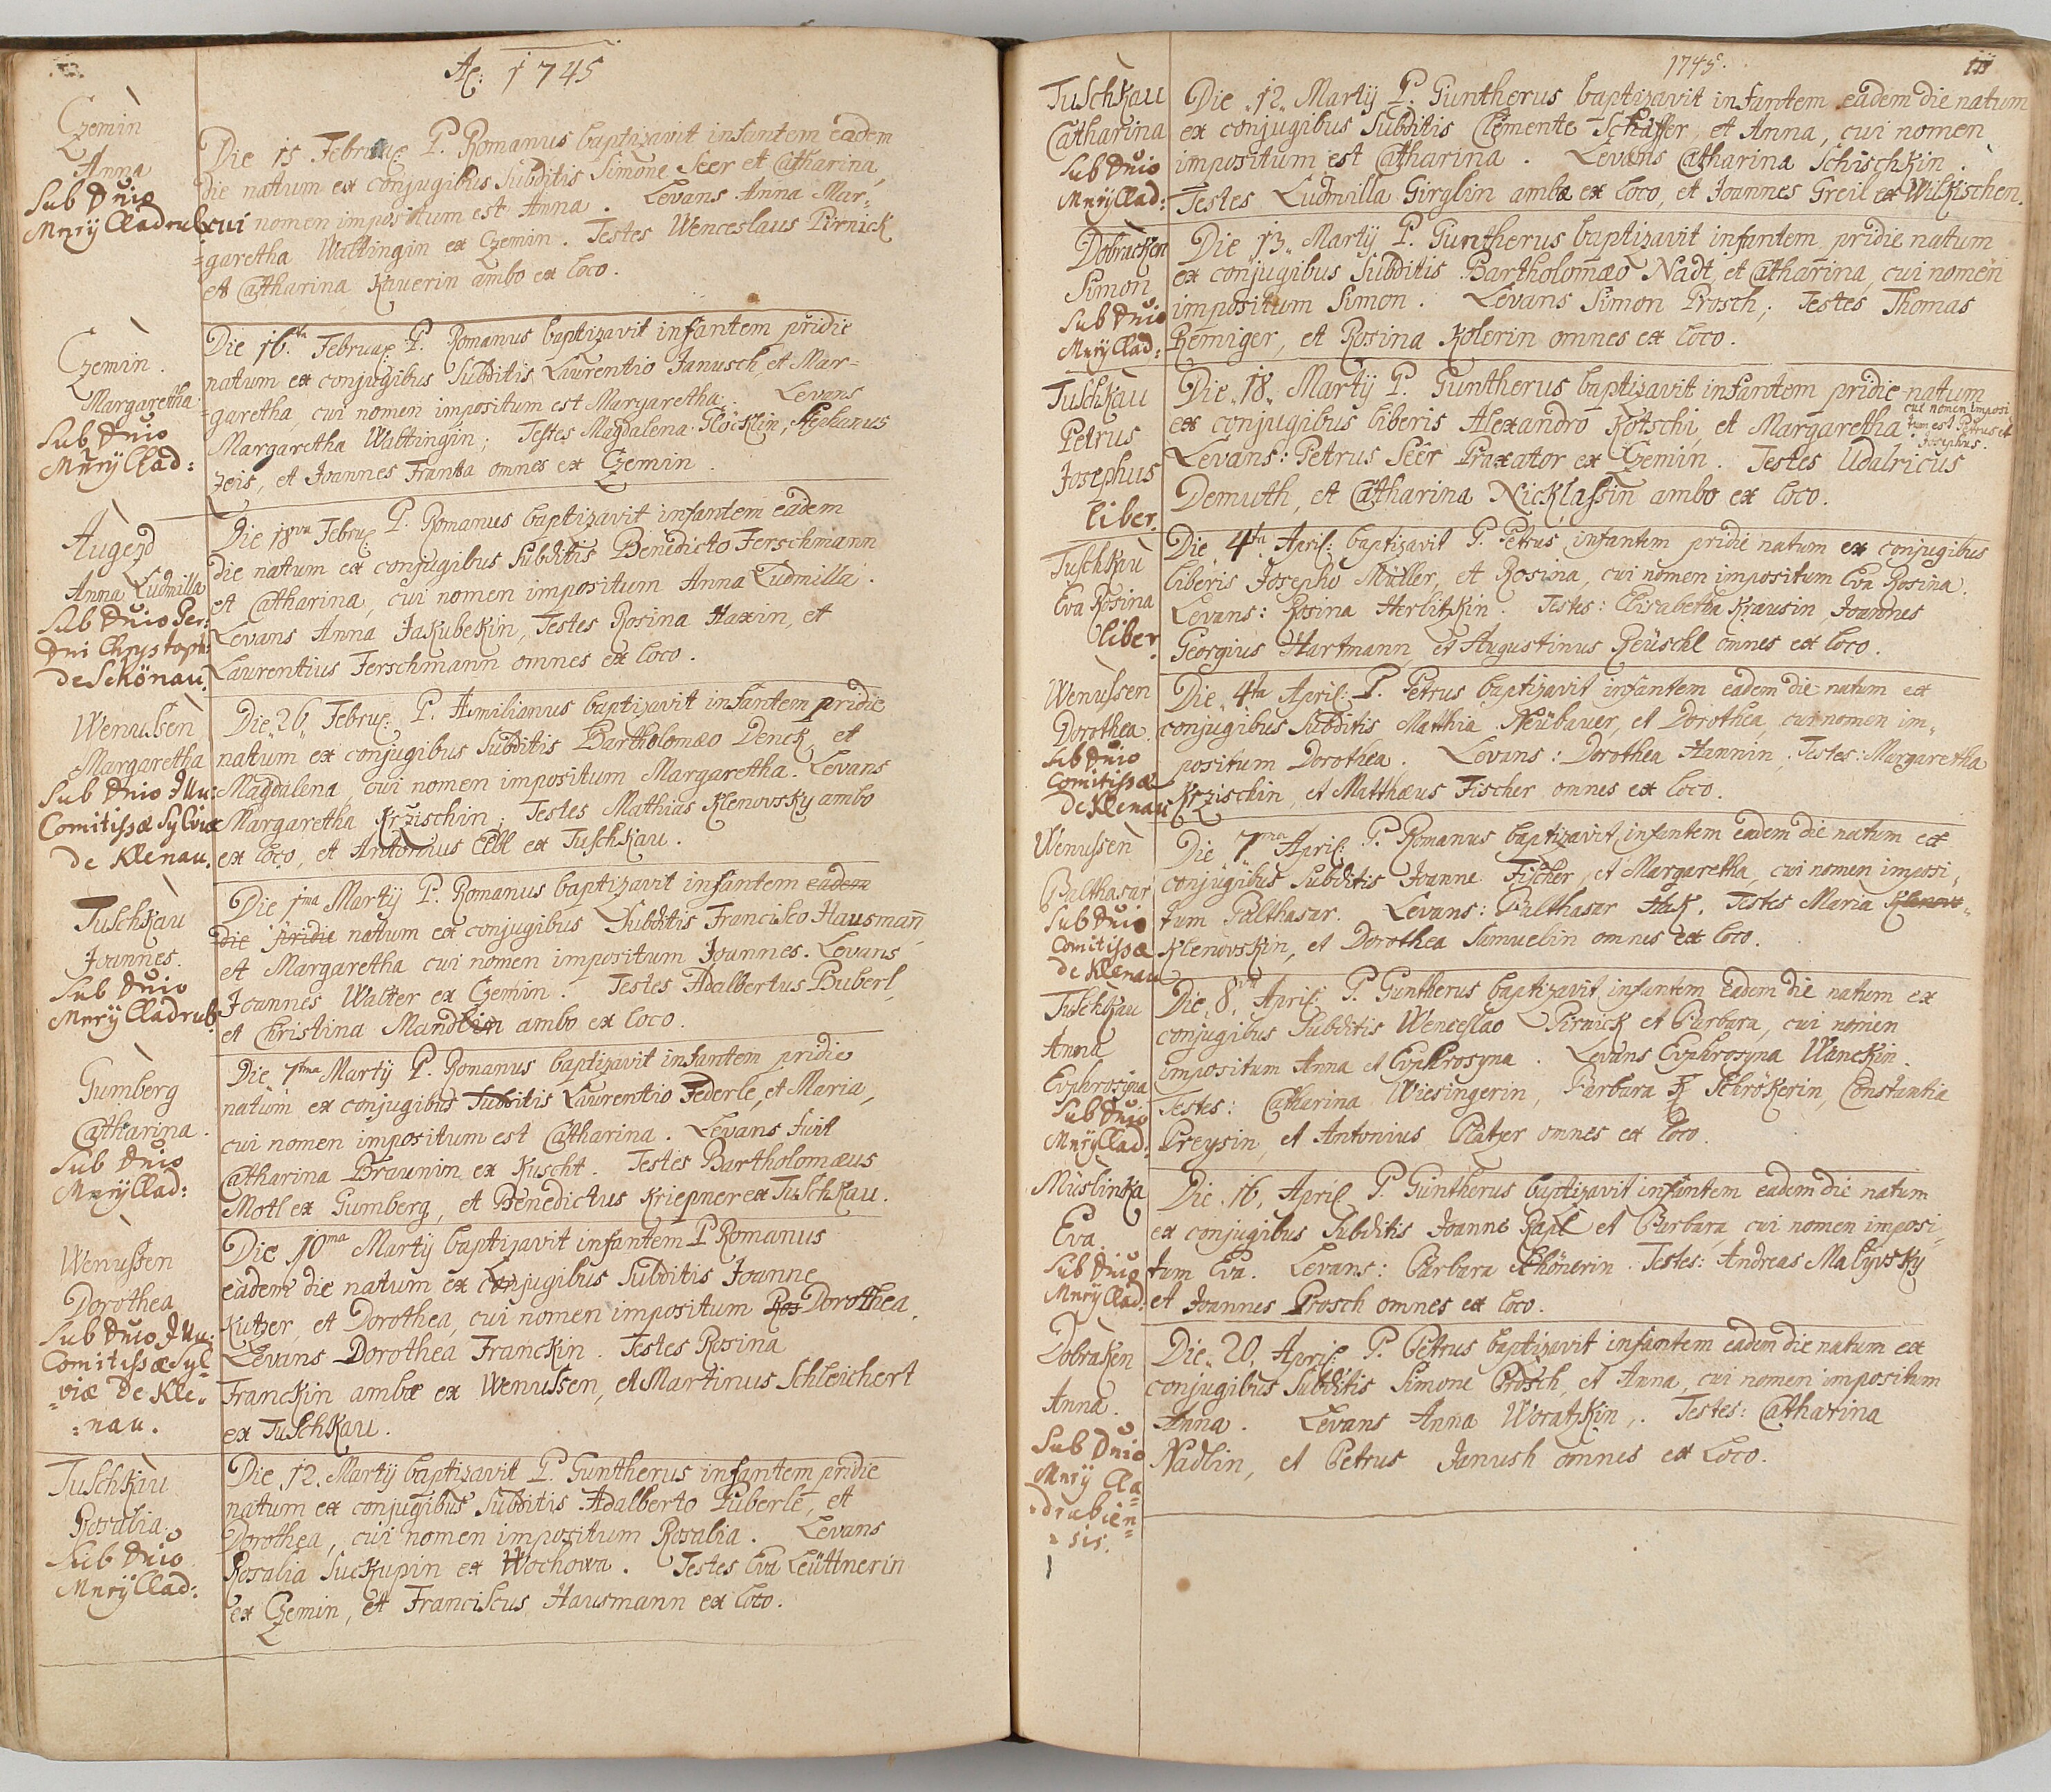 Aõ: 1745
Czemin
Anna
Sub Dnio
Mnrij Cladrub:
Die 15 Februar: P. Romanus baptizavit infantem eadem
die natum ex conjugibus Subditis Simone Seer et Catharina
cui nomen impositum est Anna. Levans Anna Mar-
=garetha Wattingin ex Czemin. Testes Wenceslaus Pirnick
et Catharina Knuerin ambo ex loco.
Czemin.
Margaretha
Sub Dnio
Mnrij Clad:
Die 16ta Februar: P. Romanus baptizavit infantem pridie
natum ex conjugibus Subditis Laurentio Janusch, et Mar=
=garetha, cui nomen impositum est Margaretha. Levans
Margaretha Wattingin; Testes Magdalena Glöcklin, Stephanus
zeis, et Joannes Franta omnes ex Czemin.
Augezd
Anna Ludmilla
Sub Dnio Per:
Dni Chrystoph:
de Schönau.
Die 18va Febru: P. Romanus baptizavit infantem eadem
die natum ex conjugibus Subditis Benedicto Ferschmann
et Catharina, cui nomen impositum Anna Ludmilla.
Levans Anna Jakubekin, Testes Rosina Haxin, et
Laurentius Ferschmann omnes ex loco.
Wenussen
Margaretha
Sub Dnio Illu:
Comitissæ Sylviæ
de Klenau.
Die 26 Febru: P. Æmilianus baptizavit infantem pridie
natum ex conjugibus Subditis Bartholomæo Denck, et
Magdalena, cui nomen impositum Margaretha. Levans
Margaretha Krzischin; Testes Mathias Klenovsky ambo
ex loco, et Antonius Eibl ex Tuschkau.
Tuschkau
Joannes.
Sub Dnio
Mnrij Cladrub:
Die 1ma Martij P. Romanus baptizavit infantem eadem
die pridie natum ex conjugibus Subditis Francisco Hausmañ
et Margaretha cui nomen impositum Joannes. Levans
Joannes Walter ex Czemin. Testes Adalbertus Puberl,
et Christina Mandlin ambo ex loco.
Gumberg
Catharina.
Sub Dnio
Mnrij Clad:
Die 7tma Martij P. Romanus baptizavit infantem pridie
natum ex conjugibus Subditis Laurentio Federle, et Maria,
cui nomen impositum est Catharina. Levans fuit
Catharina Braunin ex Kuscht. Testes Bartholomæus
Motl ex Gumberg, et Benedictus Kriepner ex Tuschkau.
Wenussen
Dorothea
Sub Dnio Illu:
Comitissæ Syl
viæ de Kle=
=nau.
Die 10ma Martij baptizavit infantem P Romanus
eadem die natum ex conjugibus Subditis Joanne
Kutzer, et Dorothea, cui nomen impositum Ros Dorothea.
Levans Dorothea Franckin. Testes Rosina
Franckin ambæ ex Wenussen, et Martinus Schleichert
ex Tuschkau.
Tuschkau
Rosalia.
Sub Dnio
Mnrij Clad:
Die 12. Martij baptizavit P. Guntherus infantem pridie
natum ex conjugibus Subditis Adalberto Puberle, et
Dorothea, cui nomen impositum Rosalia. Levans
Rosalia Suckupin ex Wochowa. Testes Eva Leüttnerin
ex Czemin, et Franciscus Hausmann ex loco.
1745.
Tuschkau
Catharina
Sub Dnio
Mnrij Clad:
Die 12 Martij P. Guntherus baptizavit infantem eadem die natum
ex conjugibus Subditis Clemente Schäffer, et Anna, cui nomen
impositum est Catharina. Levans Catharina Schischkin.
Testes Ludmilla Girglin ambæ ex loco, et Joannes Greil ex Wilkischen.
Dobracken
Simon
Sub Dnio
Mnrij Clad:
Die 13 Martij P. Guntherus baptizavit infantem pridie natum
ex conjugibus Subditis Bartholomæo Nadt, et Catharina, cui nomen
impositum Simon. Levans Simon Prosch; Testes Thomas
Remiger, et Rosina Kolerin omnes ex loco.
Tuschkau
Petrus
Josephus
liber.
Die 18 Martij P. Guntherus baptizavit infantem pridie natum
ex conjugibus liberis Alexandro Kotschi, et Margaretha cui nomen imposi
tum est Petrus et
Josephus.
Levans: Petrus Séér Praxator ex Czemin. Testes Udalricus
Demuth, et Catharina Nicklassin ambo ex loco.
Tuschkau
Eva Rosina
liber.
Die 4ta April: baptizavit P. Petrus infantem pridie natum ex conjugibus
liberis Josepho Müller, et Rosina, cui nomen impositum Eva Rosina.
Levans: Rosina Herlitzkin. Testes: Elisabetha Krausin, Joannes
Georgius Hartmann, et Augustinus Reüschl omnes ex loco.
Wenussen
Dorothea
Sub Dnio
Comitissæ
de Klenau
Die 4ta April: P. Petrus baptizavit infantem eadem die natum ex
conjugibus Subditis Matthia Neübauer, et Dorothea, cui nomen im=
positum Dorothea. Levans: Dorothea Hannin. Testes: Margaretha
Krzischin, et Matthæus Fischer omnes ex loco.
Wenussen
Balthasar
Sub Dnio
Comitissæ
de Klenau
Die 7ma April: P. Romanus baptizavit infantem eadem die natum ex
conjugibus Subditis Joanne Fischer, et Margaretha, cui nomen imposi=
tum Balthasar. Levans: Balthasar Hak. Testes Maria
Klenovskin, et Dorothea Samuelin omnes ex loco.
Tuschkau
Anna
Evphrosyna
Sub Dnio
Mnrij Clad:
Die 8 April: P. Guntherus baptizavit infantem eadem die natum ex
conjugibus Subditis Wenceslao Pirnick et Barbara, cui nomen
impositum Anna et Evphrosyna. Levans Evphrosyna Wanckin.
Testes: Catharina Wiesingerin, Barbara Schrökerin, Constantia
Preysin, et Antonius Platzer omnes ex loco.
Müslinka
Eva.
Sub Dnio
Mnrij Clad:
Die 16. April P. Guntherus baptizavit infantem eadem die natum
ex conjugibus Subditis Joanne Rapl et Barbara, cui nomen imposi=
tum Eva. Levans: Barbara Schönerin. Testes: Andreas Malyvsky
et Joannes Prosch omnes ex loco.
Dobraken
Anna.
Sub Dnio
Mnrij Cla
=drubien=
=sis.
Die 20. April: P. Petrus baptizavit infantem eadem die natum ex
conjugibus Subditis Simone Prosch, et Anna, cui nomen impositum
Anna. Levans Anna Woratzkin,. Testes: Catharina
Nadlin, et Petrus Janush omnes ex loco.